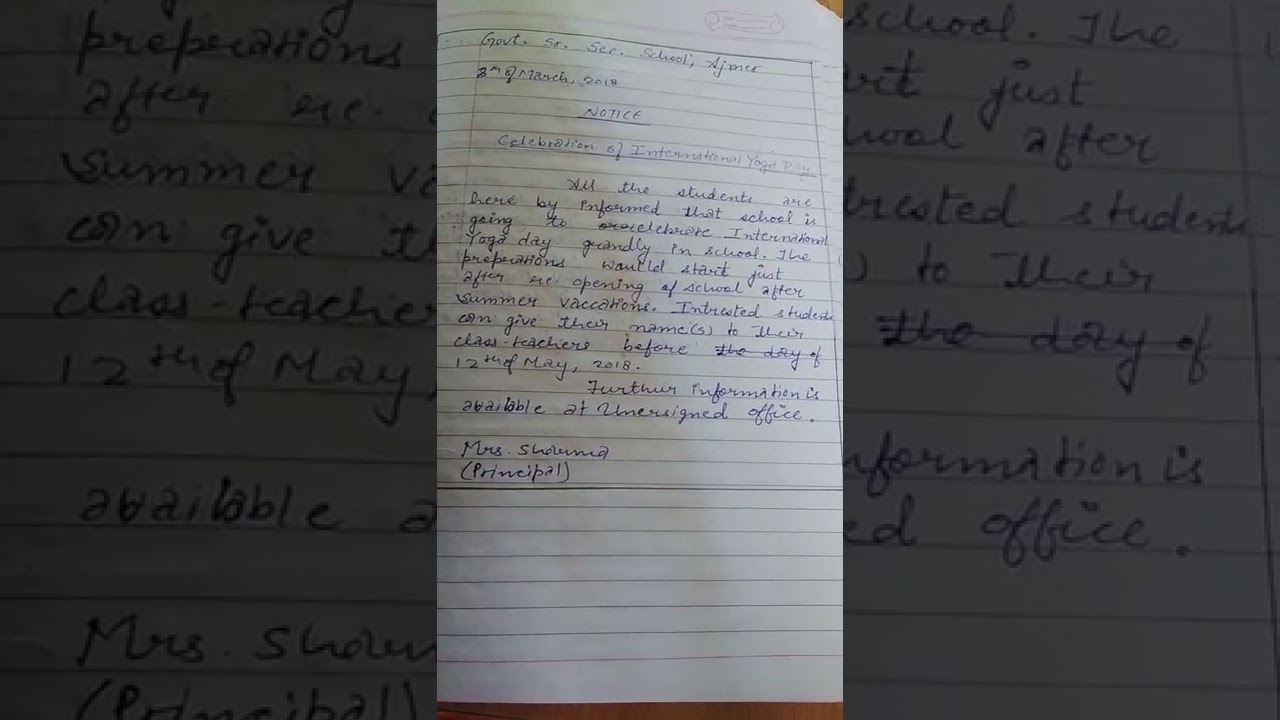 Govt. Sr. Sec. School, Ajmer
8th of March, 2018
NOTICE
Celebration of International Yoga Day
All the students are
here by informed that school is
going to celebrate International
Yoga day grandly in school. The
preperations would start just
after re. opening of school after
summer vaccations. Intrested students
can give their name(s) to their
class-teachers before the day of
12th of May, 2018.
Furthur information is
available at Unersigned office.
Mrs. Sharma
(Principal)